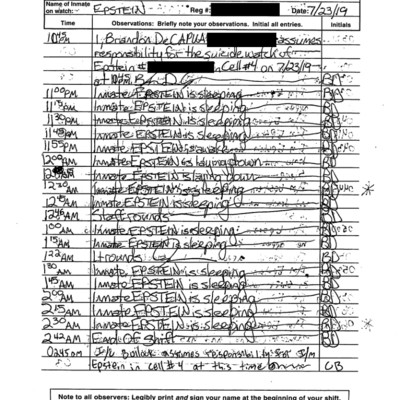 Name of Inmate
on watch: EPSTEIN Reg #: Date: 7/23/19
Time Observations: Briefly note your observations. Initial all entries. Initials
1045PM I, Brandon DeCAPUA assumes
responsibility for the suicide watch of
Epstein # in Cell #4 on 7/23/19
at 1045 BD
1100PM Inmate EPSTEIN is sleeping BD
1115PM Inmate EPSTEIN is sleeping BD
1130PM Inmate EPSTEIN is sleeping BD
1145PM Inmate EPSTEIN is sleeping BD
1155PM Inmate EPSTEIN is awake BD
1200AM Inmate EPSTEIN is laying down BD
Inmate EPSTEIN is laying down BD
1230AM Inmate EPSTEIN is sleeping BD *
1245AM Inmate EPSTEIN is sleeping BD
1246AM Staff rounds BD
100AM Inmate EPSTEIN is sleeping BD
115AM Inmate EPSTEIN is sleeping BD
122AM Lt rounds BD
130AM Inmate EPSTEIN is sleeping BD
145AM Inmate EPSTEIN is sleeping BD
200AM Inmate EPSTEIN is sleeping BD
215AM Inmate EPSTEIN is sleeping BD
230AM Inmate EPSTEIN is sleeping BD *
242AM End Of Shift BD
0245am I/C assumes responsibility for I/M
Epstein in cell #4 at this time CB
Note to all observers: Legibly print and sign your name at the beginning of your shift.